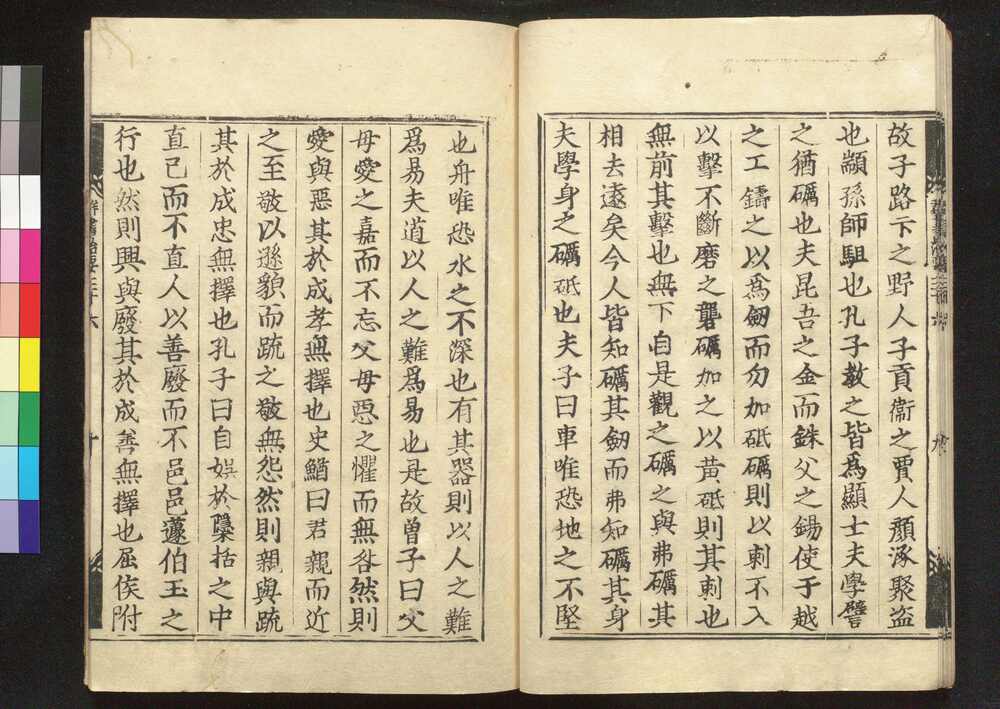 故子路卞之野人子貢衞之賈人顏涿聚盗
也顓孫師駔也孔子敎之皆爲顯士夫學譬
之猶礪也夫昆吾之金而銖父之錫使于越
之工鑄之以爲劒而勿加砥礪則以刺不入
以擊不斷磨之礱礪加之以黃砥則其刺也
無前其擊也無下自是觀之礪之與弗礪其
相去遠矣今人皆知礪其劒而弗知礪其身
夫學身之礪砥也夫子曰車唯恐地之不堅
也舟唯恐水之不深也有其器則以人之難
爲易夫道以人之難爲易也是故曾子曰父
母愛之嘉而不忘父母惡之懼而無咎然則
愛與惡其於成孝無擇也史鰌曰君親而近
之至敬以遜貌而䟽之敬無怨然則親與䟽
其於成忠無擇也孔子曰自娯於檃括之中
直己而不直人以善廢而不邑邑蘧伯玉之
行也然則興與廢其於成善無擇也屈侯附
群書治要三十六
十